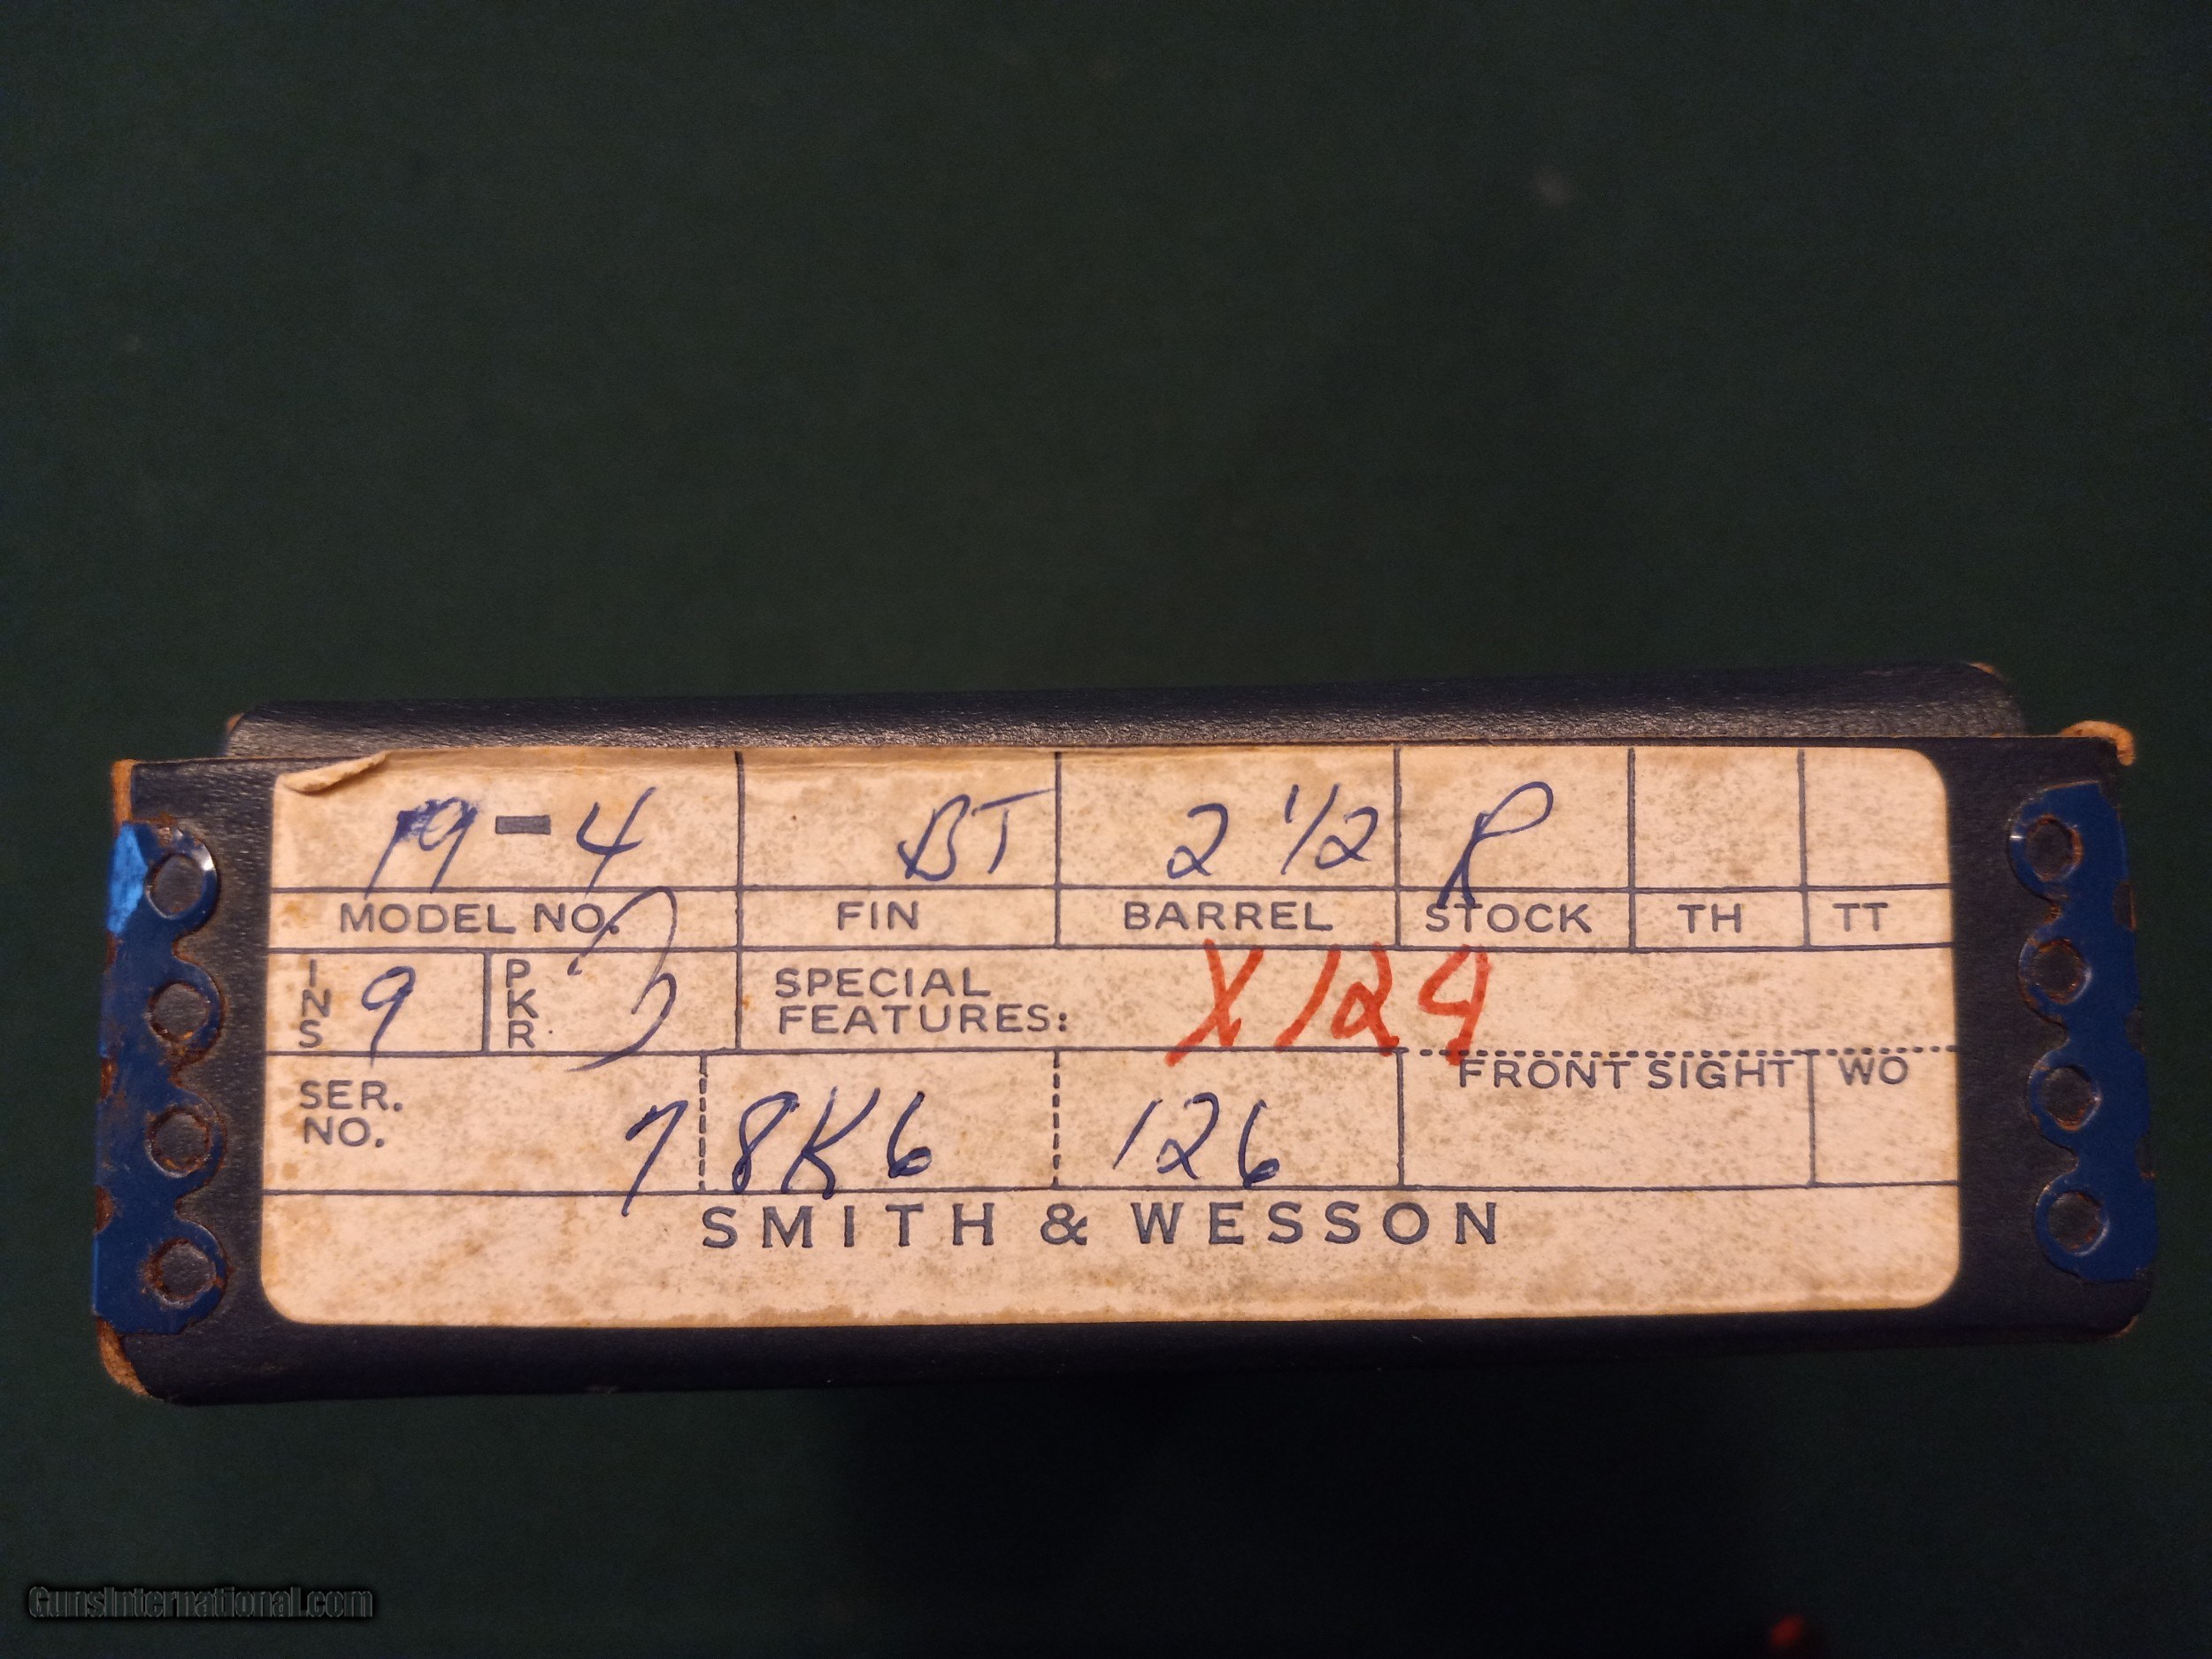 19-4 BT 2 1/2 R
MODEL NO. FIN BARREL STOCK TH TT
INS 9 PKR SPECIAL FEATURES: X124
FRONT SIGHT WO
SER. NO. 7 8K6 126
SMITH & WESSON
GunsInternational.com